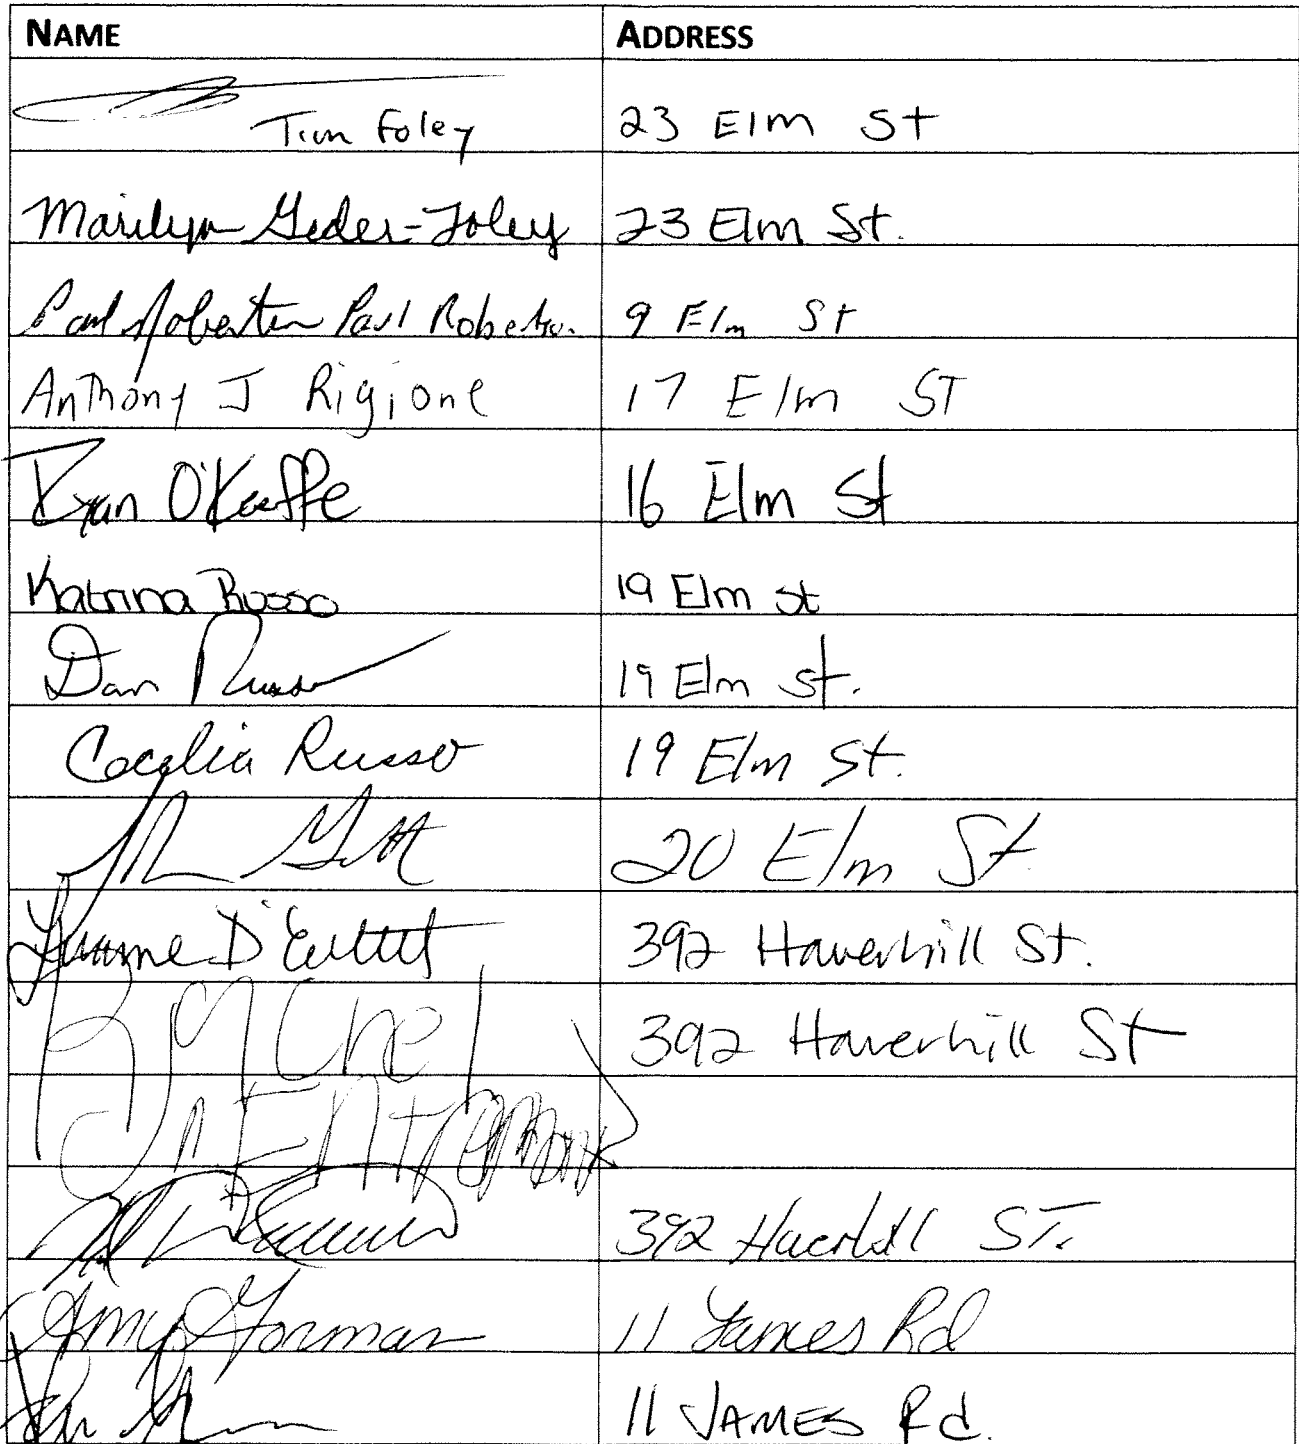 NAME ADDRESS
Tim Foley 23 Elm St
Marilyn Geder-Foley 23 Elm St.
Paul Robertson Paul Robertson 9 Elm St
Anthony J Rigione 17 Elm ST
Ryan O'Keeffe 16 Elm St
Katrina Russo 19 Elm St
Dan Russo 19 Elm St.
Cecelia Russo 19 Elm St.
20 Elm St
392 Haverhill St.
Rachel 392 Haverhill St
D'Entremont
392 Haverhill ST.
Amy Gorman 11 James Rd
11 JAMES Rd.